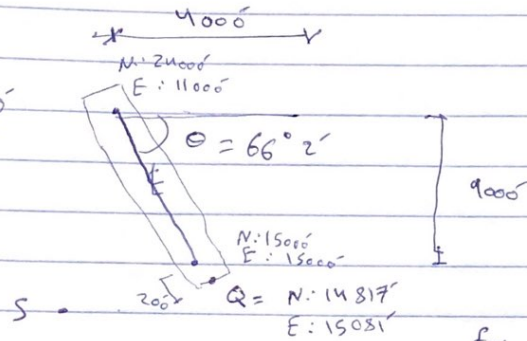 4000'
N: 24000'
E: 11000'
θ = 66° 2'
9000'
N: 15000'
E: 15000'
200'
Q = N: 14817'
E: 15081'
S